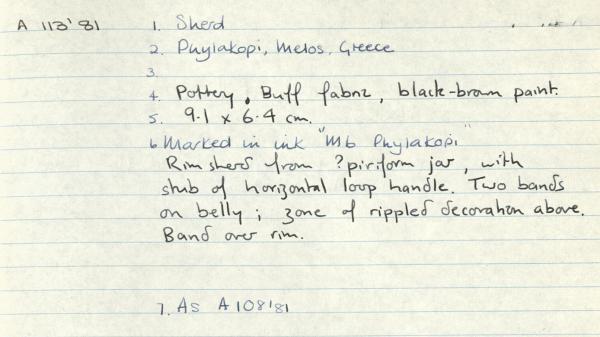 A 113'81
1. Sherd
2. Phylakopi, Melos, Greece
3.
4. Pottery. Buff fabric, black-brown paint.
5. 9.1 x 6.4 cm.
6 Marked in ink "Mb Phylakopi"
Rim sherd from ?piriform jar, with
stub of horizontal loop handle. Two bands
on belly; zone of rippled decoration above.
Band over rim.
7. As A 108'81